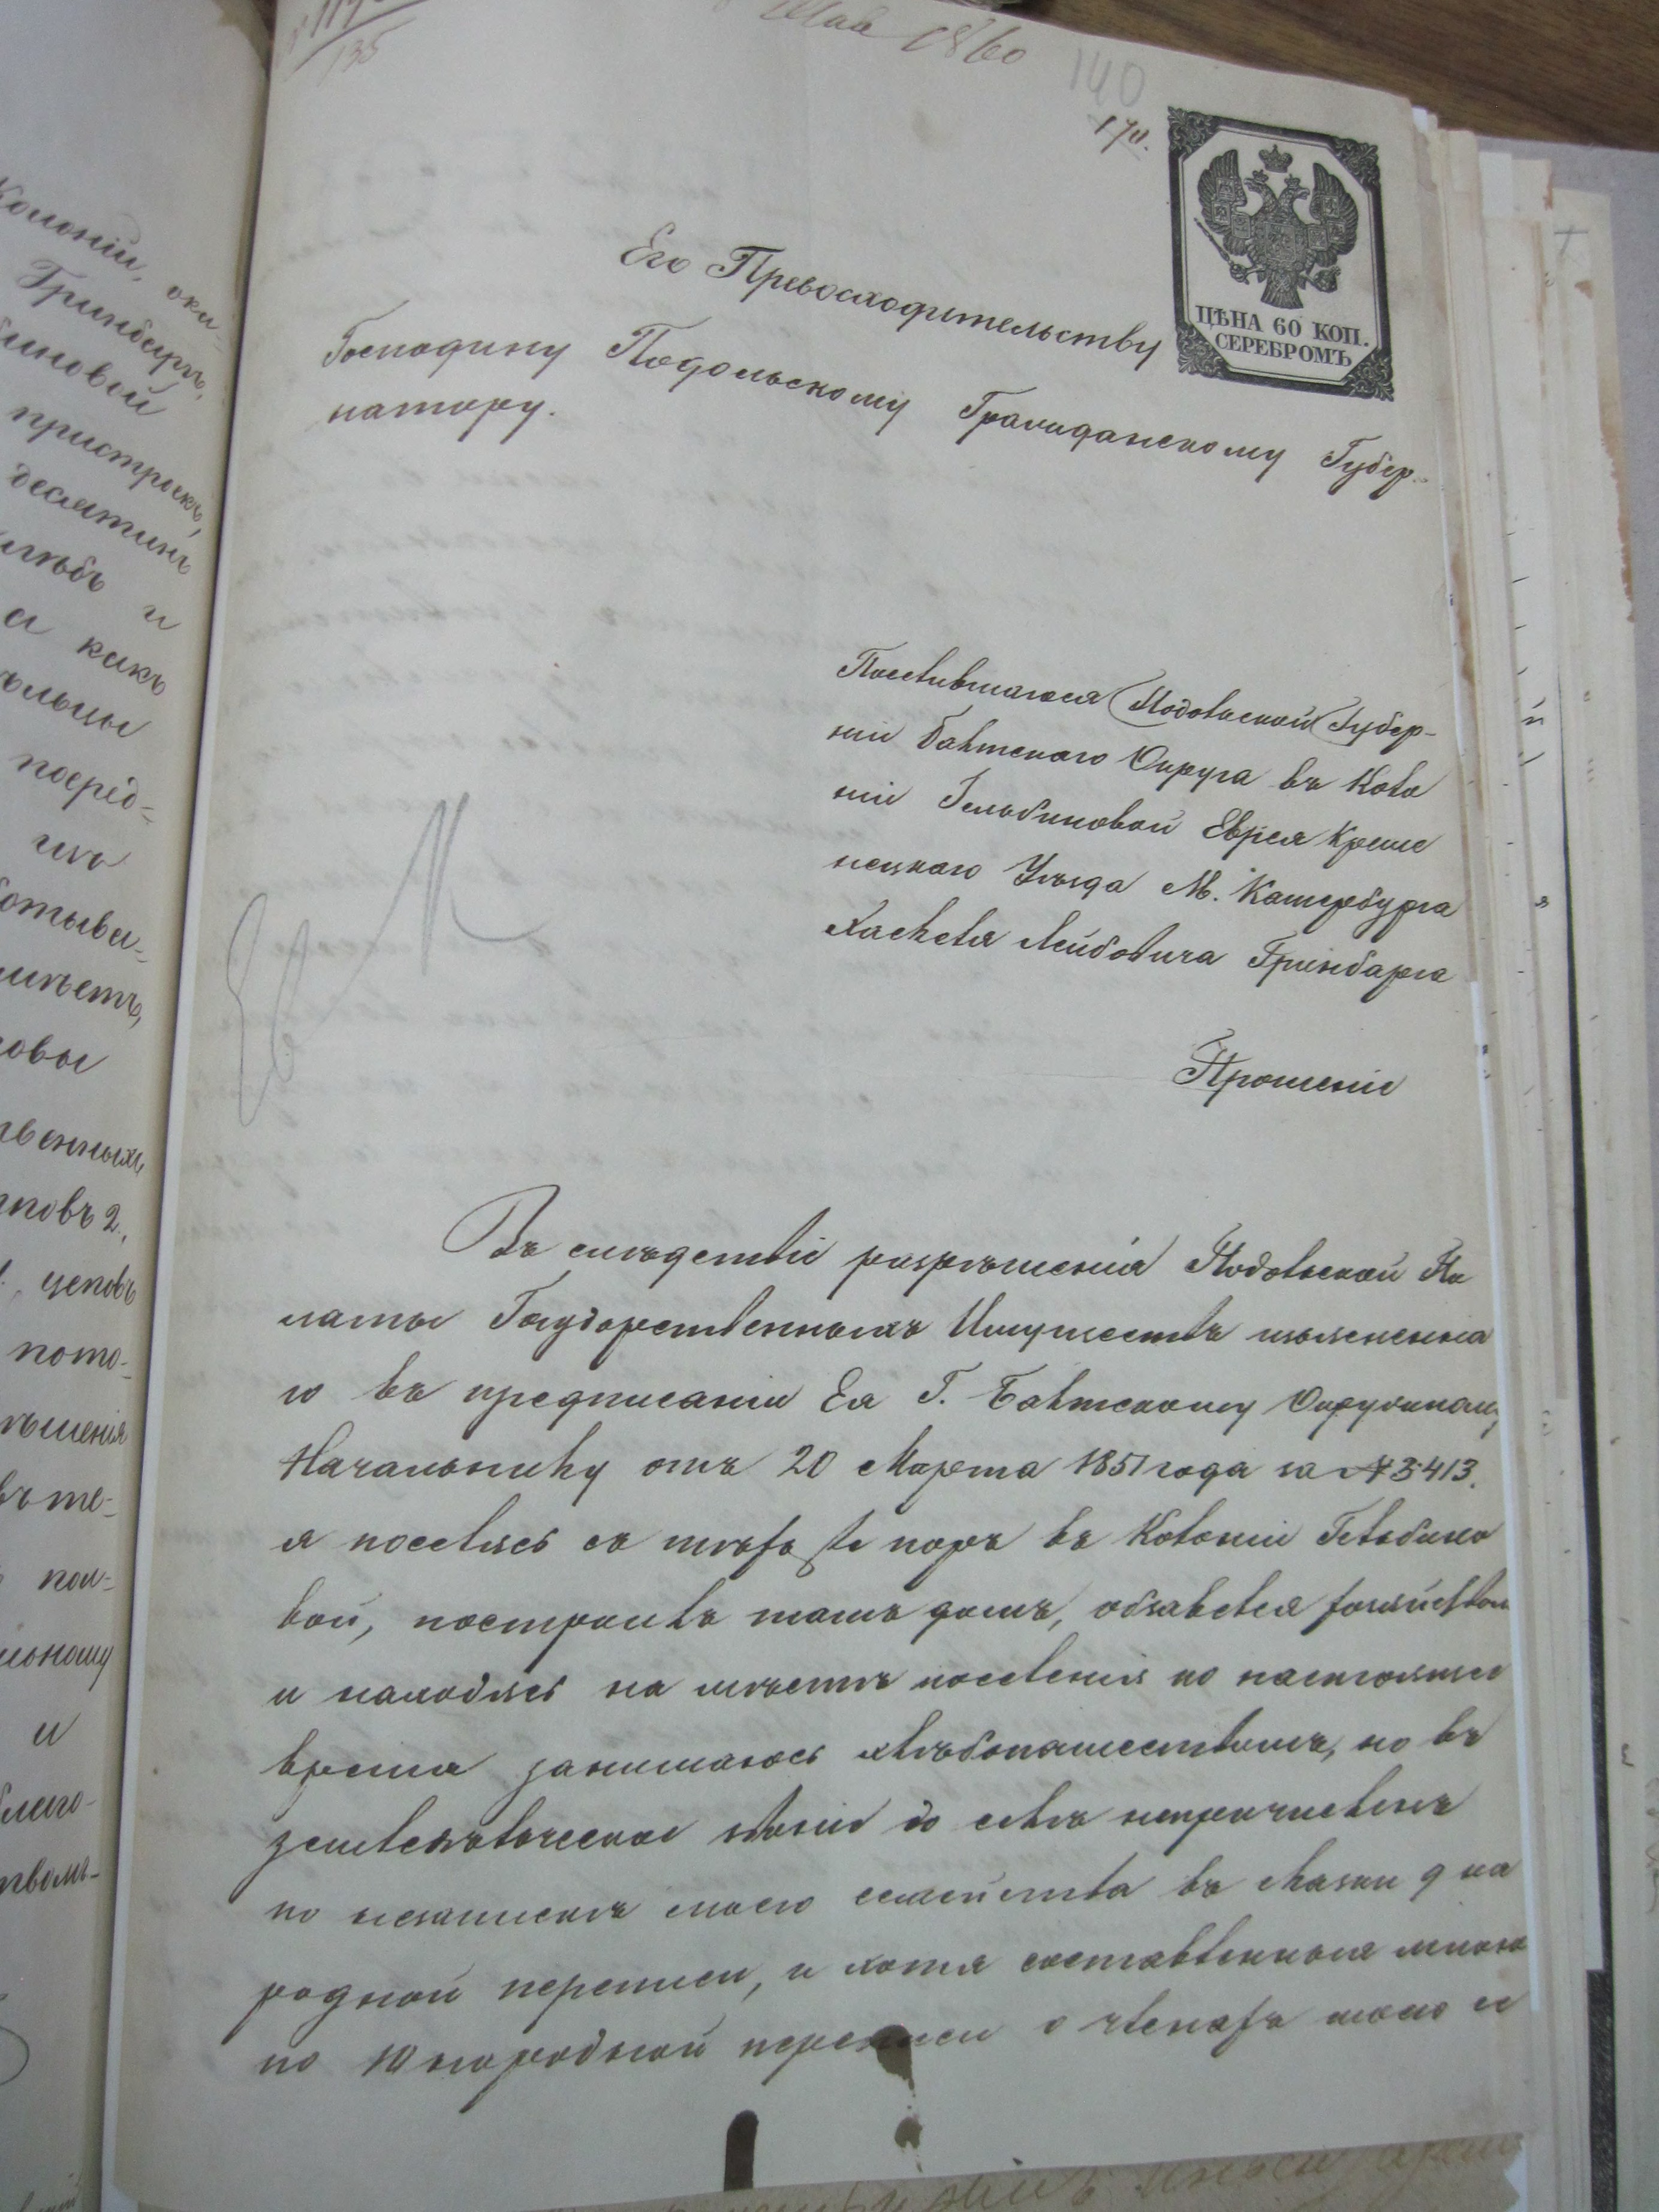 Мая 1860
135
140
170.
ЦѢНА 60 КОП.
СЕРЕБРОМЪ
Его Превосходительству
Господину Подольскому Гражданскому Губер-
натору.
Поселившагося Подольской Губер-
нии Балтскаго Округа въ Коло
ніи Гельбиновой Еврея Креме
нецкаго Уѣзда М. Катербурга
Хаскеля Лейбовича Гринбарга
Прошеніе
Въ слѣдствіе разрѣшенія Подольской Па
латы Государственныхъ Имуществъ изъясненна
го въ предписаніи Ея Г. Балтскому Окружному
Начальнику отъ 20 Марта 1851 года за № 3413.
я поселясь съ тѣхъ же поръ въ Колоніи Гельбино
вой, построивъ тамъ домъ, обзавелся хозяйством
и находясь на мѣстѣ поселенія по настоящее
время занимаюсь хлѣбопашествомъ, но въ
земледѣльческое званіе до селѣ непричисленъ
по незапискѣ моего семейства въ сказки 9 на
родной переписи, и хотя составленныя мною
по 10 народной переписи о членахъ моего се
Колоніи, ока-
Гринбергъ,
биновой
пристрыекъ,
десятинъ
хлѣбъ и
а какъ
посред-
отыва-
имѣетъ,
венныхъ
2.
цеповъ
пото-
ѣшенія
въ те-
пол-
льному
и
благо-